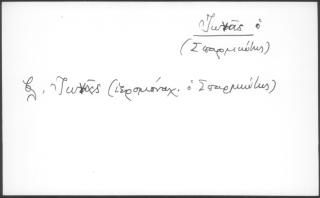 Ἰωνᾶς ὁ
(Σπαρμιώτης)
βλ. Ἰωνᾶς (ἱερομόναχ. ὁ Σπαρμιώτης)